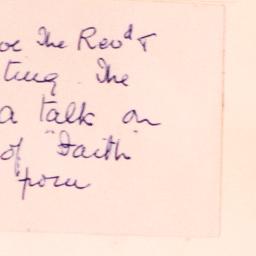 The Revd T
ting. The
a talk on
of "Faith"